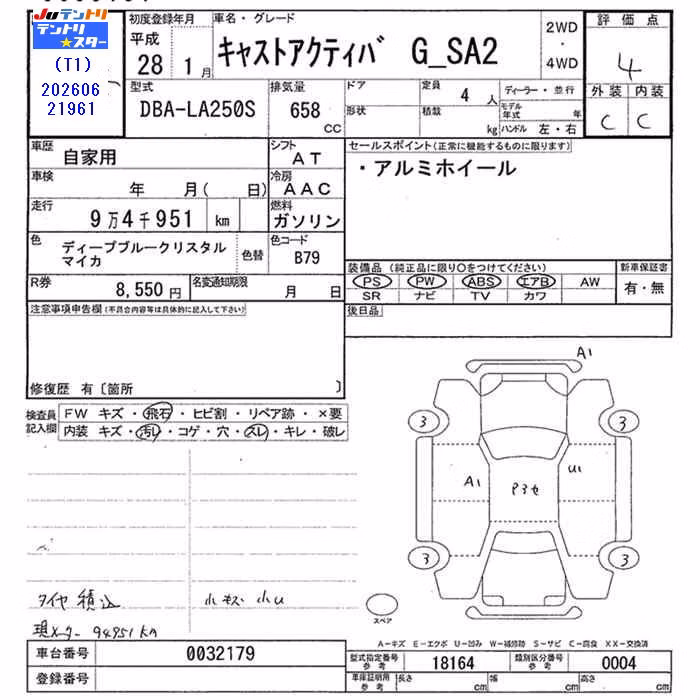 JUテントリ
テントリ★スター
(T1)
202606
21961
初度登録年月
平成
28 1月
車名・グレード
キャストアクティバ G_SA2
2WD
・
4WD
評価点
4
外装 内装
C C
型式
DBA-LA250S
排気量
658
CC
ドア
形状
定員
4 人
積載
kg
ディーラー・並行
モデル年式 年
ハンドル 左・右
車歴
自家用
シフト
AT
車検
年 月( 日)
冷房
AAC
走行
9万4千951 km
燃料
ガソリン
色
ディープブルークリスタル
マイカ
色替
色コード
B79
R券
8,550 円
名変通知期限
月 日
セールスポイント(正常に機能するものに限ります)
・アルミホイール
装備品 (純正品に限り○をつけてください)
PS PW ABS エアB AW
SR ナビ TV カワ
新車保証書
有・無
後日品
注意事項申告欄(不具合内容等は具体的に記入して下さい)
修復歴 有〔箇所 〕
検査員
記入欄
FW キズ・飛石・ヒビ割・リペア跡・×要
内装 キズ・汚レ・コゲ・穴・スレ・キレ・破レ
タイヤ積込
小キズ 小U
現メーター 94951km
A1
3
3
A1
P3セ
U1
3
3
スペア
A-キズ E-エクボ U-凹み W-補修跡 S-サビ C-腐食 XX-交換済
車台番号
0032179
登録番号
型式指定番号
参考
18164
類別区分番号
参考
0004
車庫証明用
参考
長さ cm
幅 cm
高さ cm